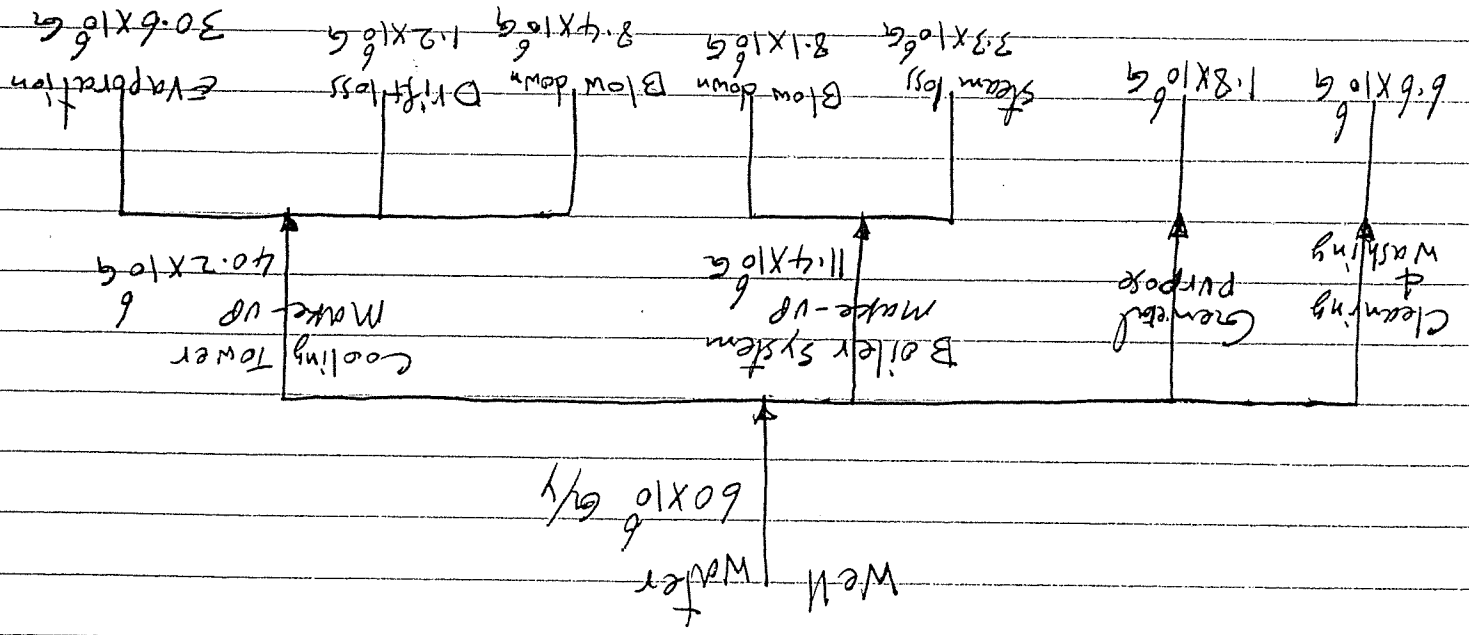 Well water
60 X 10⁶ G/Y
Cleaning
&
washing
General
purpose
Boiler System
make-up
11.4 X 10⁶ G
Cooling Tower
Make-up
40.2 X 10⁶ G
6.6 X 10⁶ G
1.8 X 10⁶ G
steam loss
3.3 X 10⁶ G
Blow down
8.1 X 10⁶ G
Blow down
8.4 X 10⁶ G
Drift loss
1.2 X 10⁶ G
Evapora
tion
30.6 X 10⁶ G